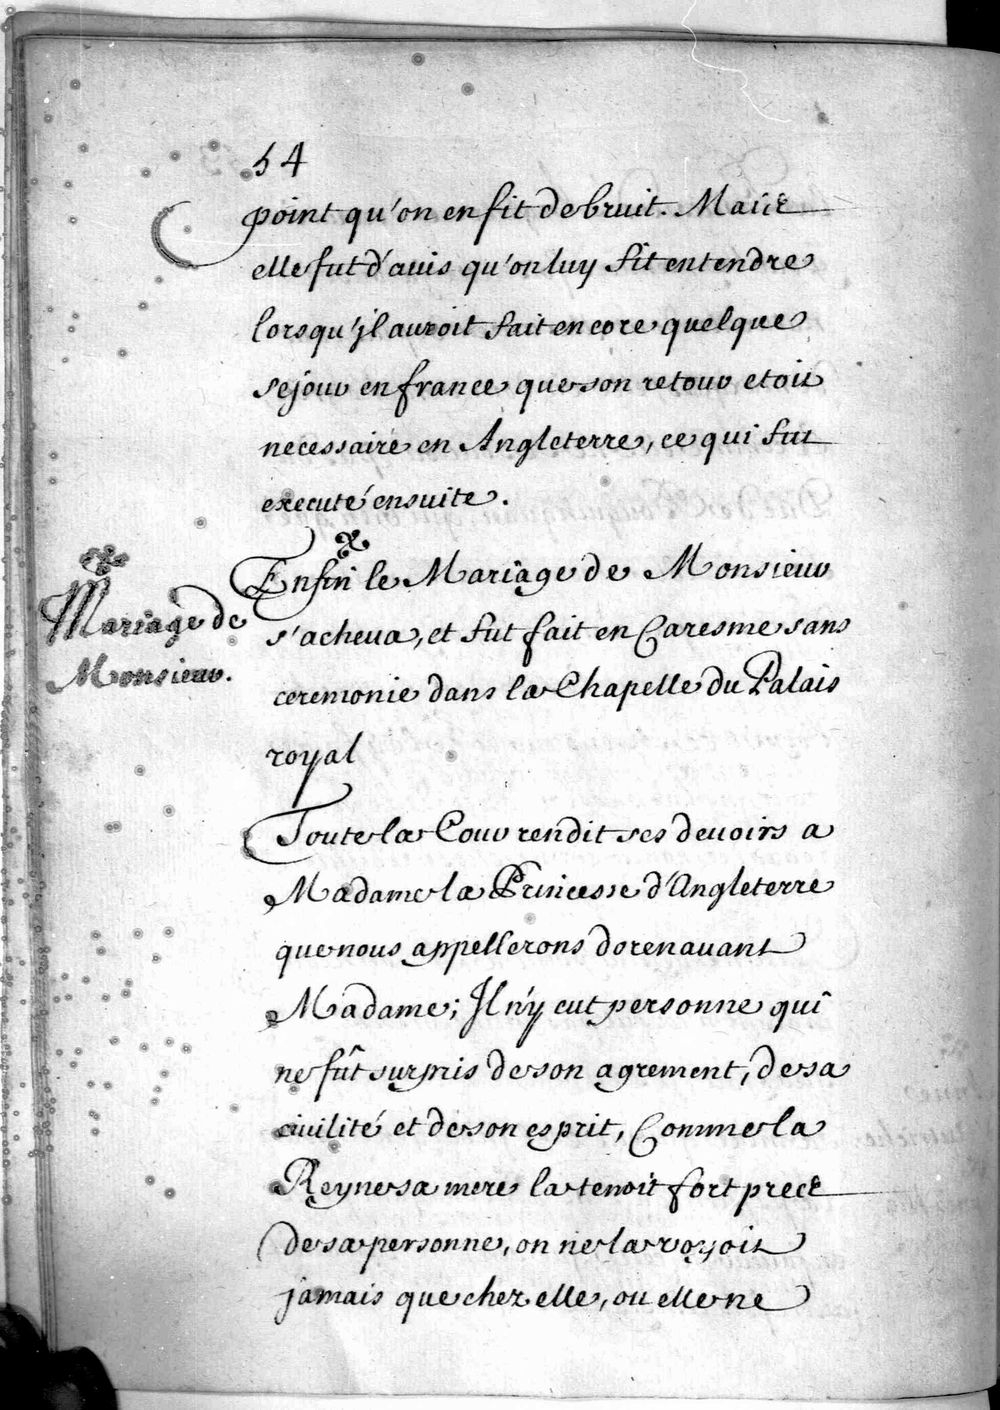 54
point qu'on en fit de bruit. Mais
elle fut d'auis qu'on luy fit entendre
lorsqu'jl auroit fait encore quelque
sejour en france que son retour etoit
necessaire en Angleterre, ce qui fut
executé ensuite.
Mariage de
Monsieur.
Enfin le Mariage de Monsieur
s'acheua, et fut fait en Caresme sans
ceremonie dans la Chapelle du Palais
royal
Toute la Cour rendit ses deuoirs a
Madame la Princesse d'Angleterre
que nous appellerons dorenauant
Madame; Il n'y eut personne qui
ne fût surpris de son agrement, de sa
ciuilité et de son esprit, Comme la
Reyne sa mere la tenoit fort prez
de sa personne, on ne la voyoit
jamais que chez elle, ou elle ne